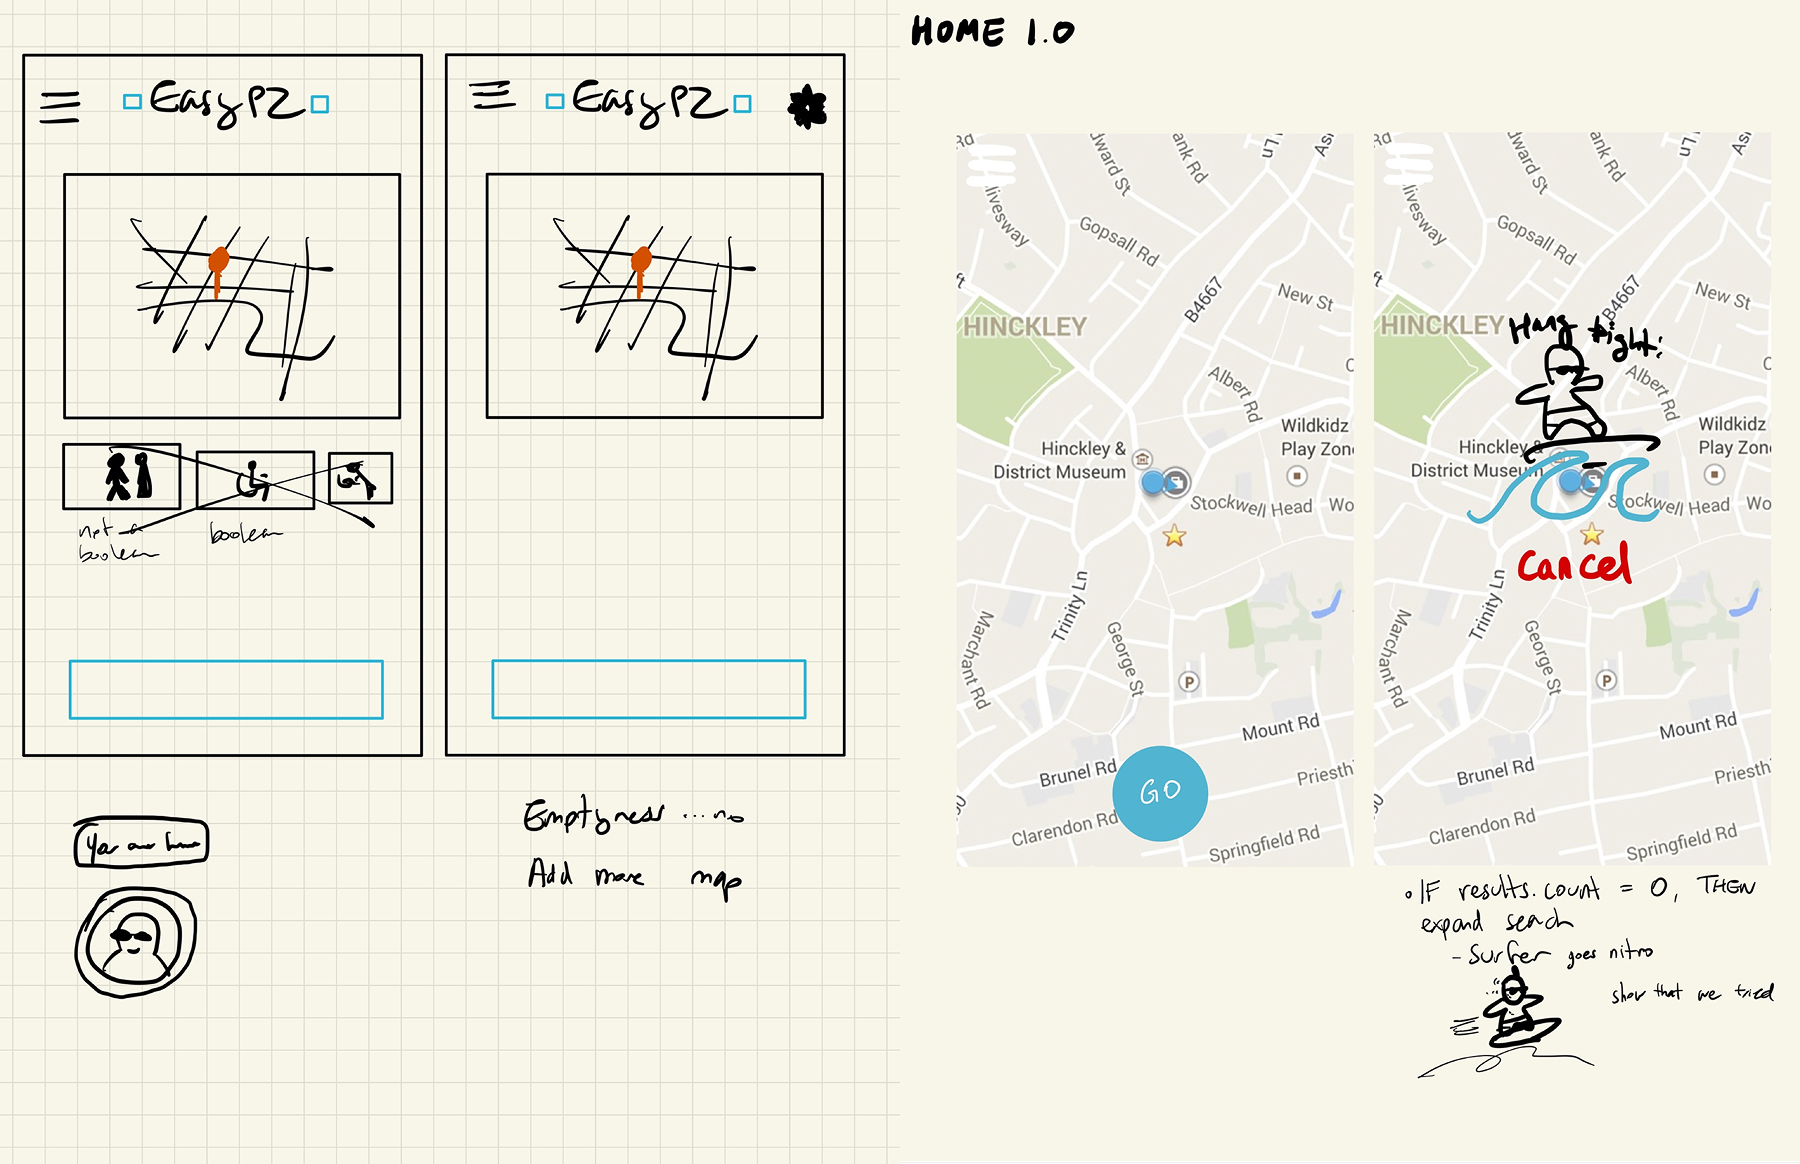 HOME 1.0
EasyPZ
EasyPZ
not a
boolean
boolean
You are here
Emptyness ... no
Add more map
Rd
dward St
ank Rd
Ln
As
livesway
Gopsall Rd
ft
B4667
New St
HINCKLEY
Albert Rd
C
Wildkidz
Play Zon
Hinckley &
District Museum
Stockwell Head
Wo
Trinity Ln
Marchant Rd
George St
P
Mount Rd
Brunel Rd
Priesth
GO
Clarendon Rd
Springfield Rd
Rd
dward St
ank Rd
Ln
As
livesway
Gopsall Rd
ft
B4667
New St
HINCKLEY
Hang tight!
Albert Rd
C
Wildkidz
Play Zon
Hinckley &
District Museum
Stockwell Head
Wo
Cancel
Trinity Ln
Marchant Rd
George St
P
Mount Rd
Brunel Rd
Priesth
Clarendon Rd
Springfield Rd
IF results.count = 0, THEN
expand search
- Surfer goes nitro
show that we tried